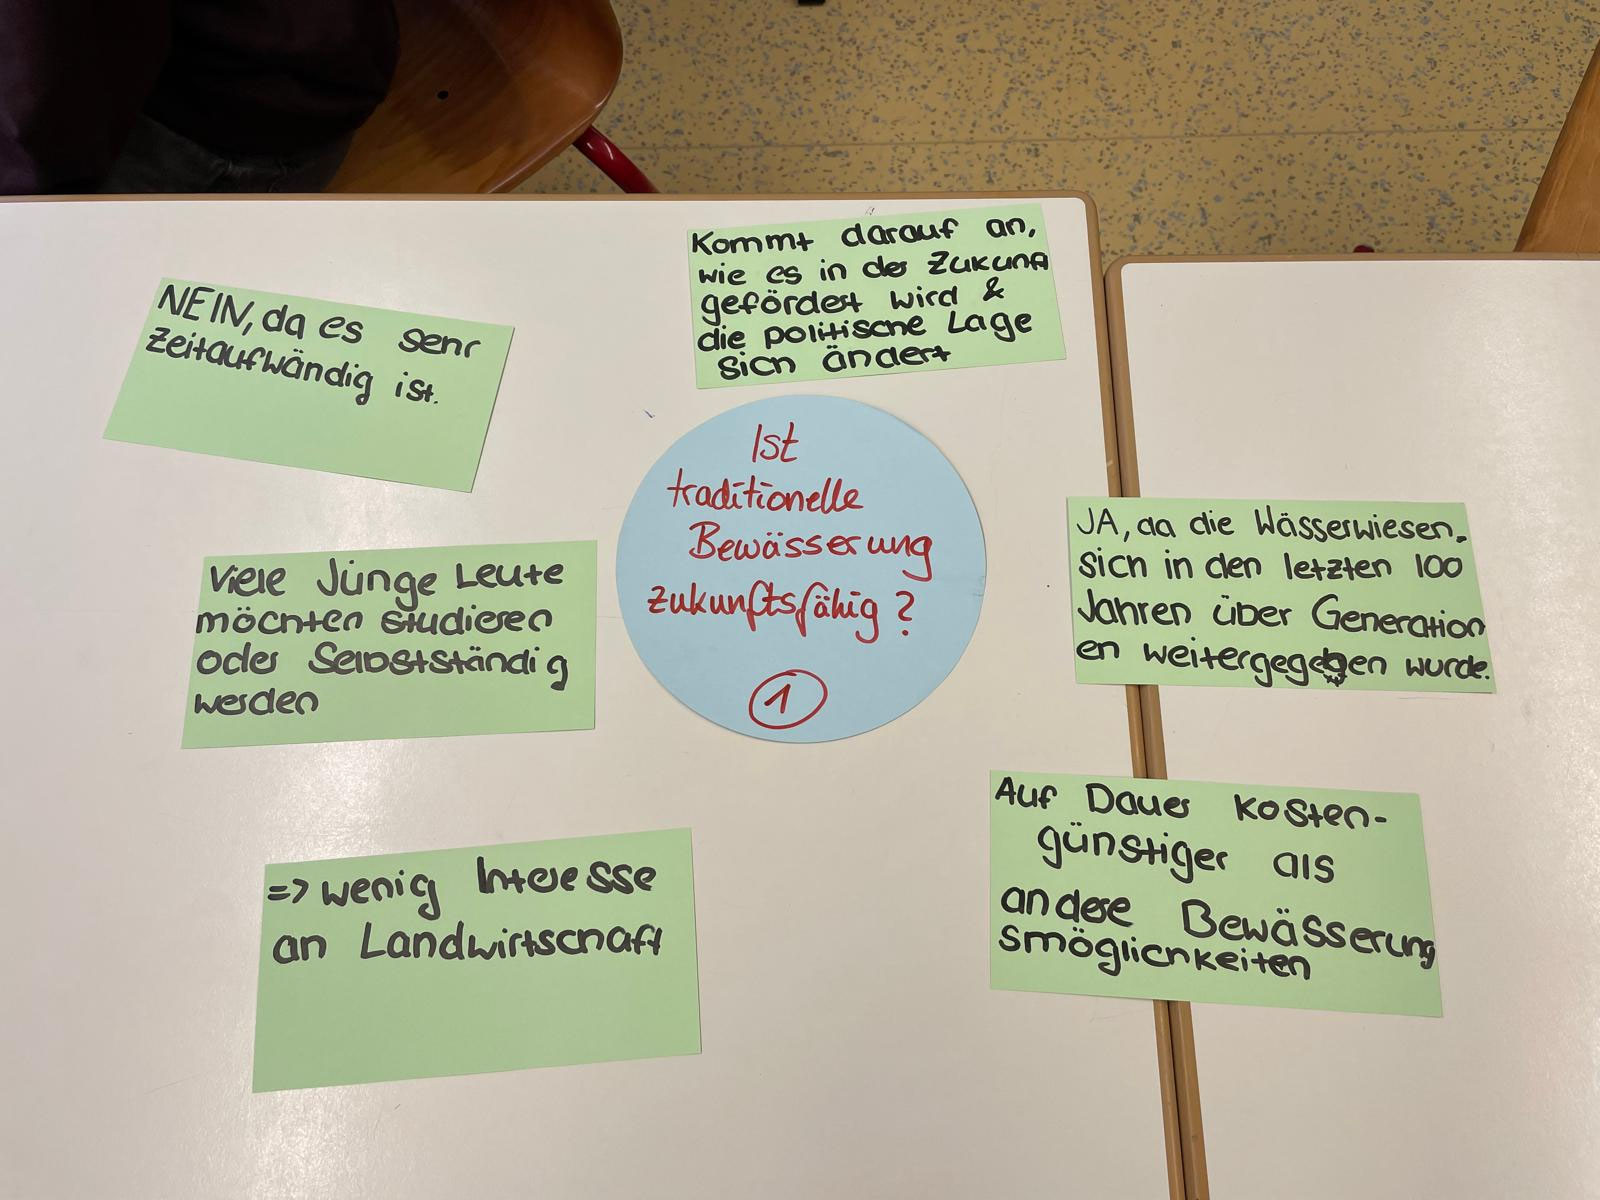 Kommt darauf an,
wie es in der Zukunft
gefördert wird &
die politische Lage
sich ändert
NEIN, da es sehr
zeitaufwändig ist.
Ist
traditionelle
Bewässerung
zukunftsfähig?
1
JA, da die Wässerwiesen,
sich in den letzten 100
Jahren über Generation
en weitergegeben wurde.
Viele Junge Leute
möchten studieren
oder Selbstständig
werden
Auf Dauer kosten-
günstiger als
andere Bewässerung
smöglichkeiten
=> wenig Interesse
an Landwirtschaft